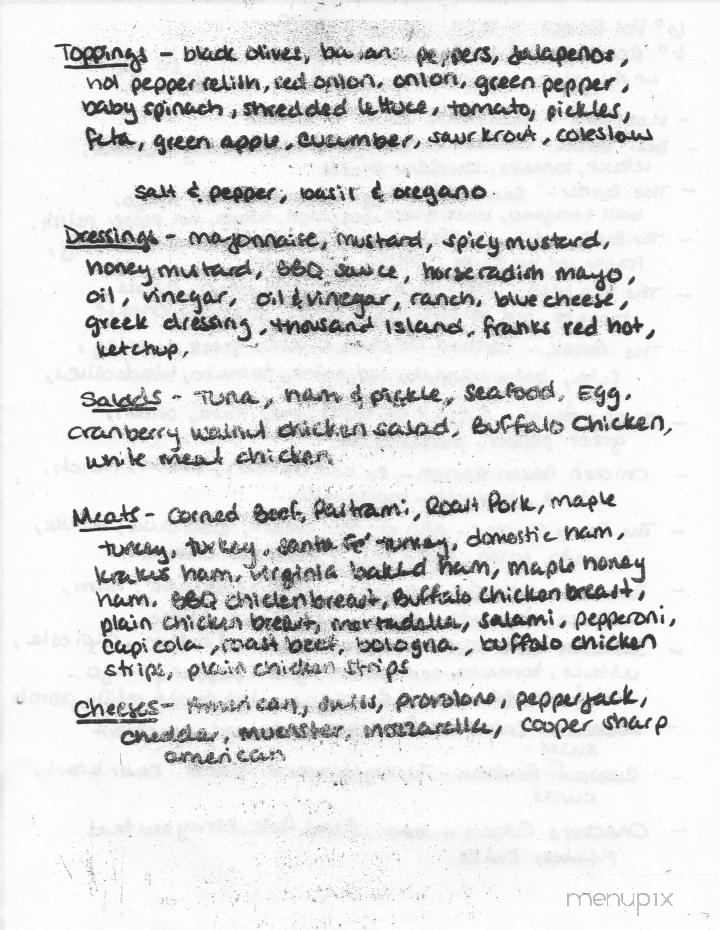 Toppings - black olives, banana peppers, jalapenos,
hot pepper relish, red onion, onion, green pepper,
baby spinach, shredded lettuce, tomato, pickles,
feta, green apple, cucumber, saurkrout, coleslaw
salt & pepper, basil & oregano
Dressings - mayonnaise, mustard, spicy mustard,
honey mustard, BBQ sauce, horseradish mayo,
oil, vinegar, oil & vinegar, ranch, blue cheese,
greek dressing, thousand island, franks red hot,
ketchup,
Salads - Tuna, ham & pickle, seafood, Egg,
cranberry walnut chicken salad, Buffalo Chicken,
white meat chicken
Meats - Corned Beef, Pastrami, Roast Pork, maple
turkey, turkey, santa fe' turkey, domestic ham,
krakus ham, virginia baked ham, maple honey
ham, BBQ chicken breast, Buffalo chicken breast,
plain chicken breast, mortadella, salami, pepperoni,
capicola, roast beef, bologna, buffalo chicken
strips, plain chicken strips
Cheeses - American, swiss, provolone, pepperjack,
cheddar, muenster, mozzarella, cooper sharp
american
menupix